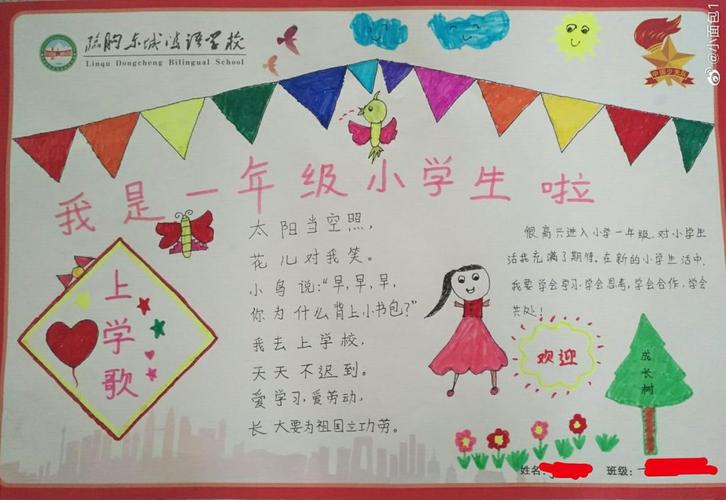 临朐东城双语学校
Linqu Dongcheng Bilingual School
中国少先队
@小面包1
我是一年级小学生啦
上学歌
太阳当空照,
花儿对我笑。
小鸟说:“早,早,早,
你为什么背上小书包?”
我去上学校,
天天不迟到。
爱学习,爱劳动,
长大要为祖国立功劳。
很高兴进入小学一年级.对小学生
活我充满了期待.在新的小学生活中,
我要学会学习.学会思考,学会合作,学会
共处!
欢迎
成长树
姓名:
班级:一